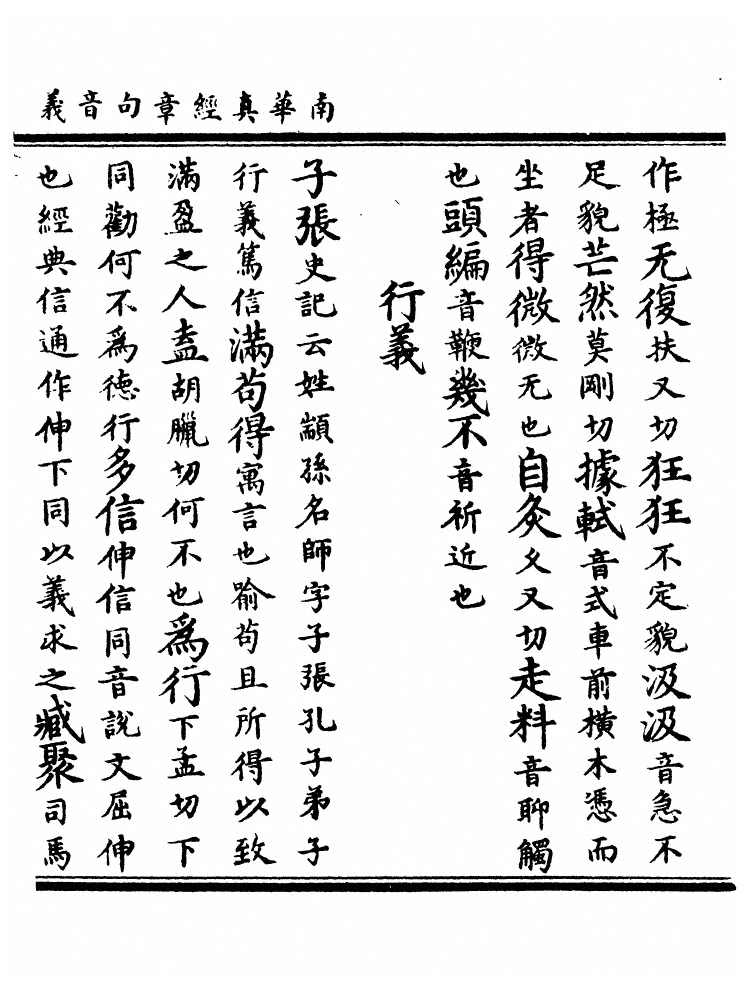 南華真經章句音義
作極无復扶又切狂狂不定貌汲汲音急不
足貌芒然莫剛切據軾音式車前橫木憑而
坐者得微微无也自灸久又切走料音聊觸
也頭編音鞭幾不音祈近也
行義
子張史記云姓顓孫名師字子張孔子弟子
行義篤信滿苟得寓言也喻苟且所得以致
滿盈之人盍胡臘切何不也為行下孟切下
同勸何不為德行多信伸信同音說文屈伸
也經典信通作伸下同以義求之臧聚司馬